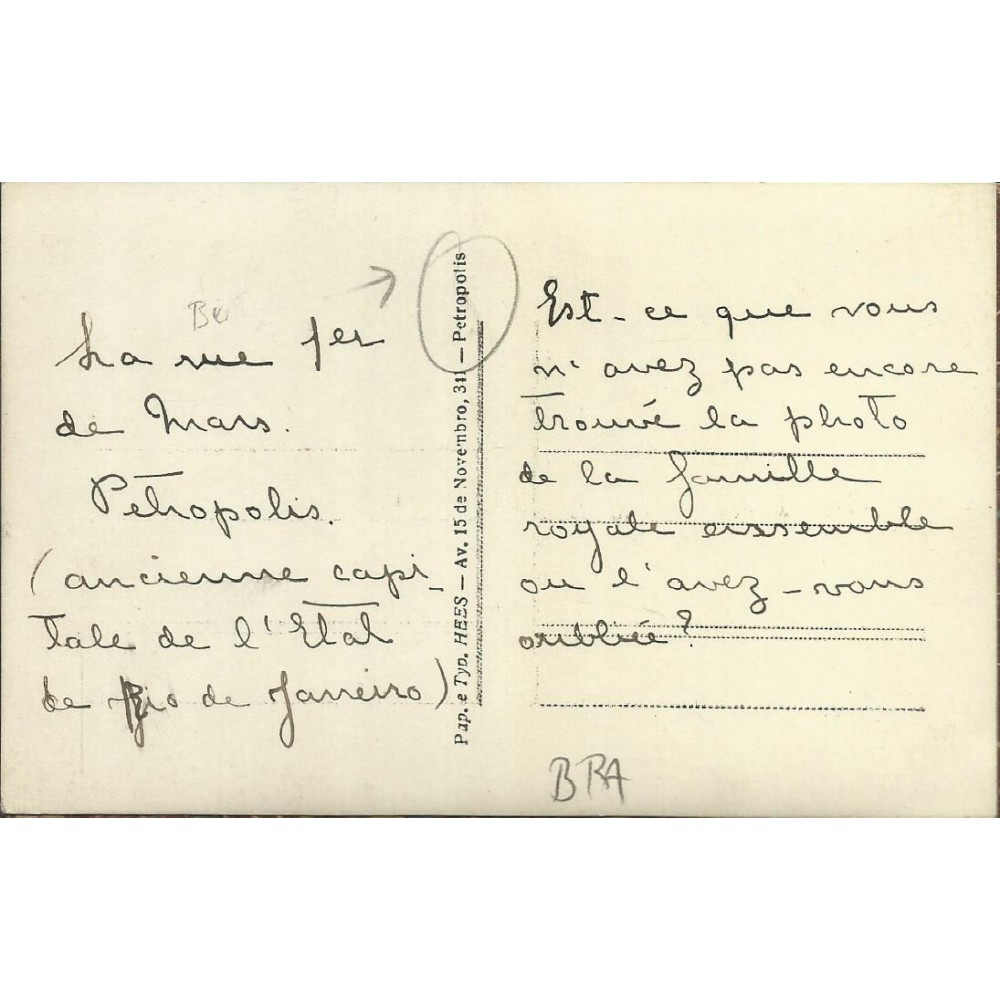 La rue 1er
de Mars.
Petropolis.
(ancienne capi-
tale de l'Etat
de Rio de Janeiro)
Pap. e Typ. HEES — Av. 15 de Novembro, 311 — Petropolis
Est-ce que vous
n'avez pas encore
trouvé la photo
de la famille
royale enssemble
ou l'avez-vous
oubliée?
BRA